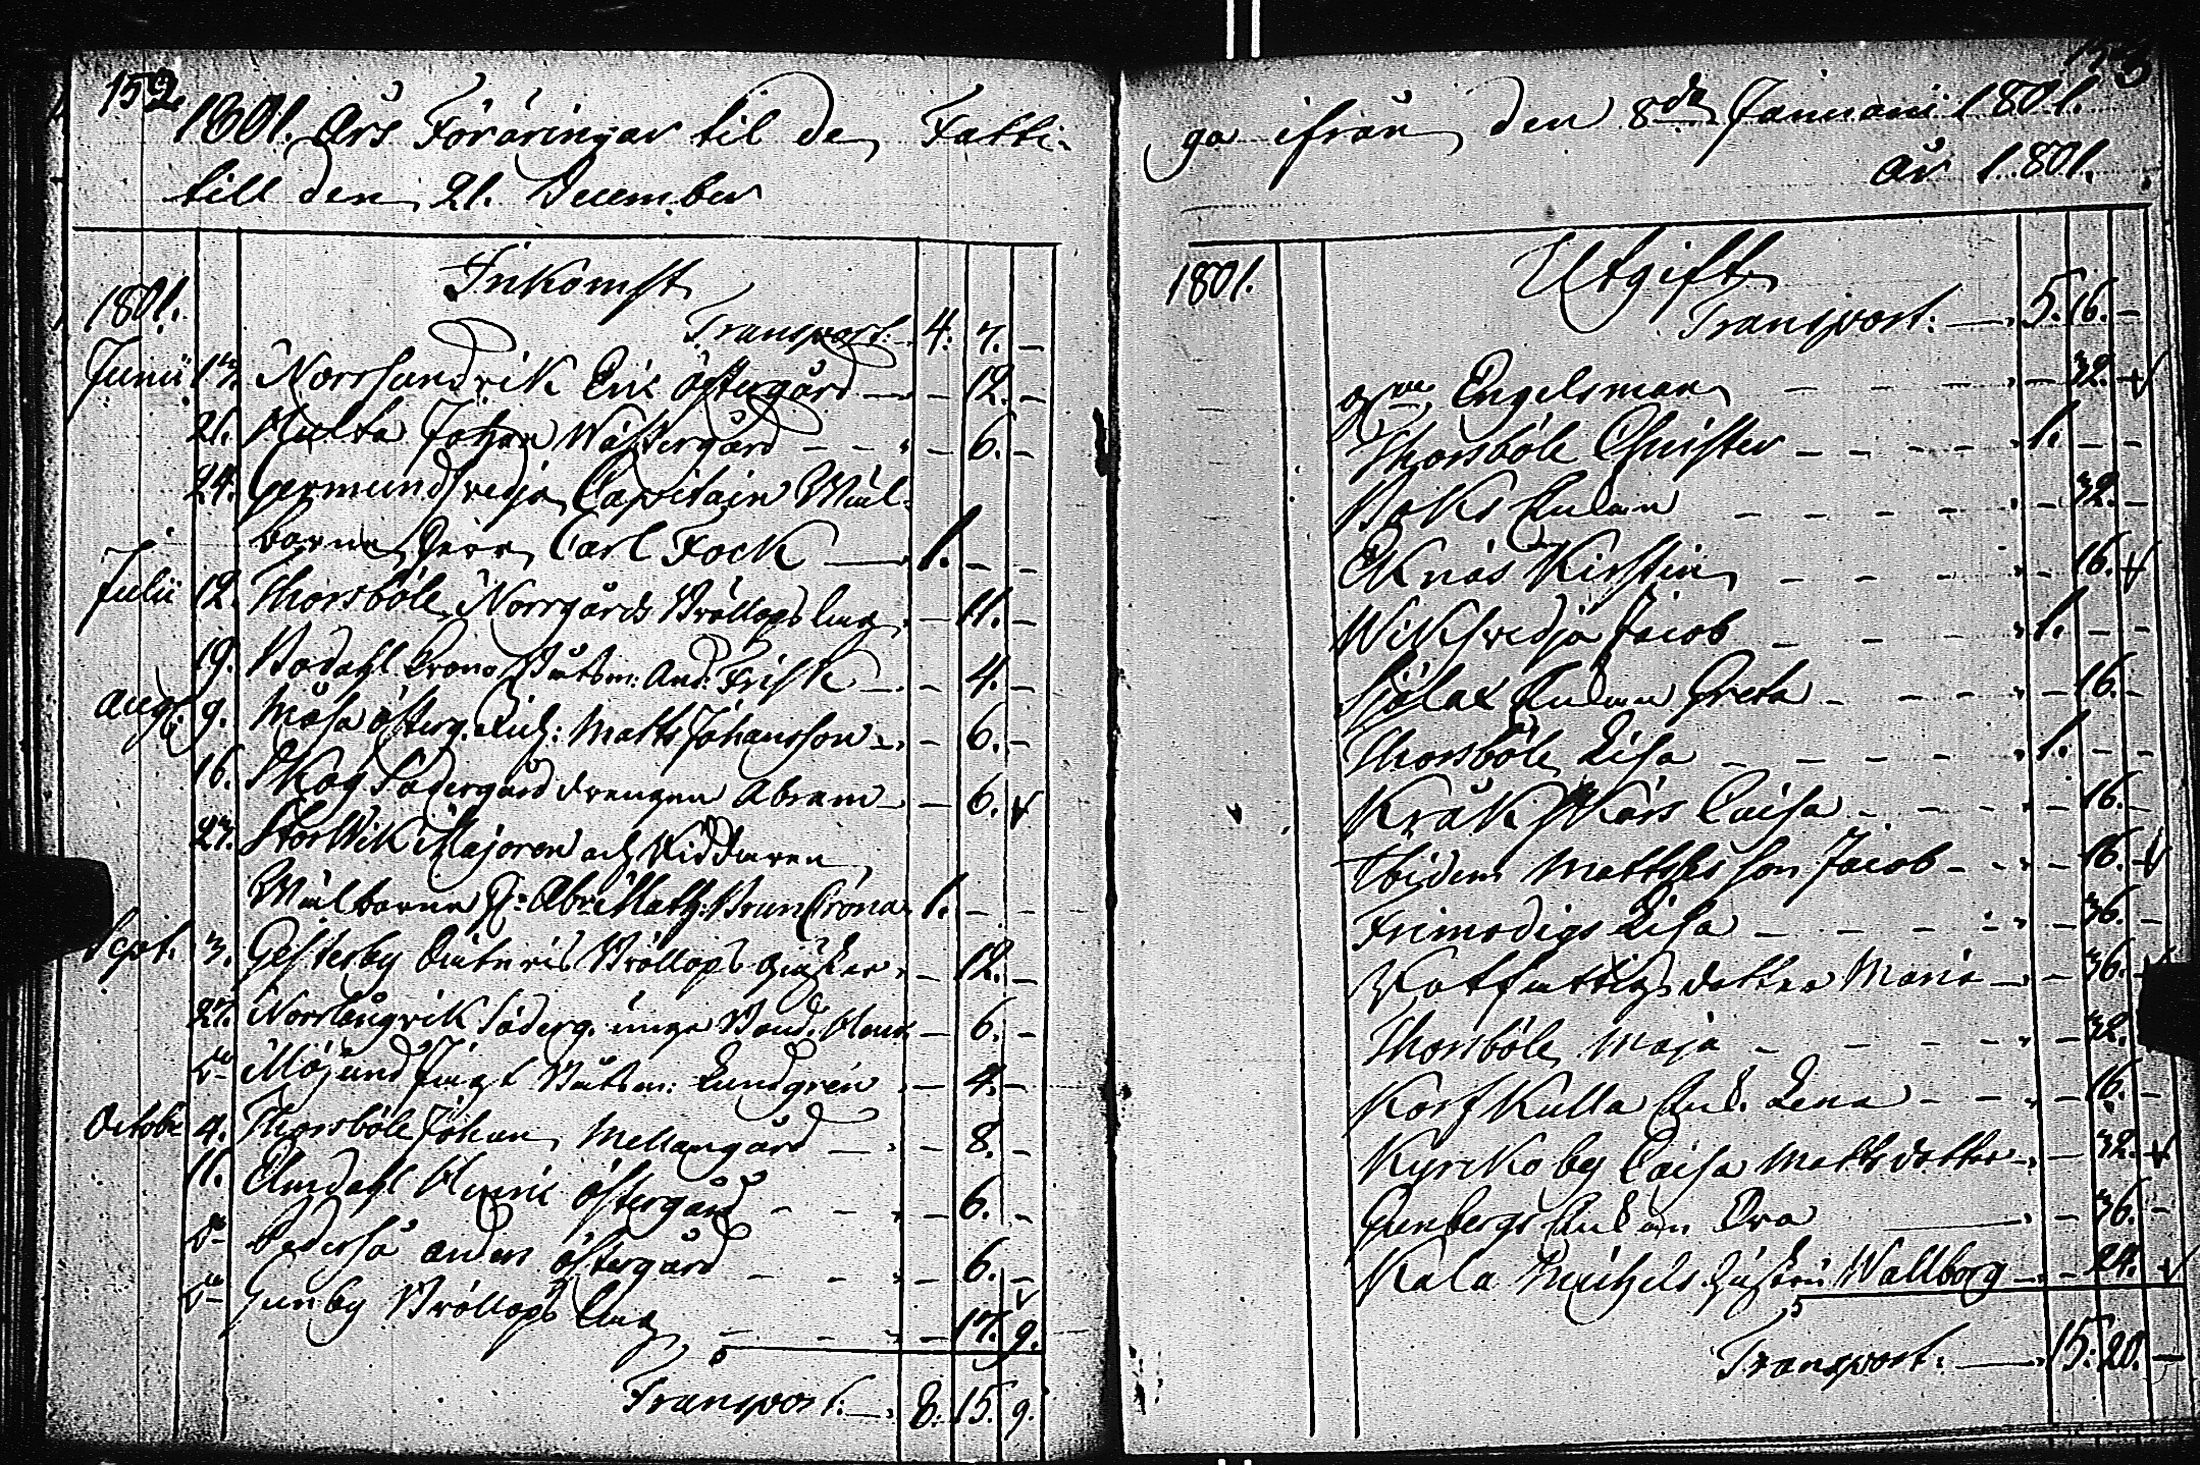 152.
1801. Års Föräringar til de Fatti-
till den 21. December
Inkomst
1801.
Transport: 4: 7. —
Junii 17. Norrsundvik Eric Östergård — 12. —
21. Hulta Johan Wästergård — 6. —
24. Germundsvedja Capitain Wäl-
borne Herr Carl Fock — 1. — —
Julii 12. Thorsböle Norrgårds Bröllops lag — 11. —
19. Bodahl Crono Båtsm: And: Frisk — 4. —
Aug: 9. Mäsa Österg. Matts Johansson — 6. —
16. Skog Södergård drengen Abram — 6.
27. StorWik Majoren och Riddaren
Wälborne H: Abr: Math: Brun Crona 1. — —
Sept. 3. Gesterby Bröllops — 12. —
27. Norrlångvik Söderg. unga Bond. — 6. —
D:o Båtsm: Lundgren — 4. —
Octobr 4. Thorsböle Johan Mellangård — 8. —
11. Henric Östergård — 6. —
D:o Pederså Anders Östergård — 6. —
D:o Gunby Bröllops Lag — 17. 9.
Transport: 8: 15. 9.
ga ifrån den 8de Januari 1801.
År 1801.
1801. Utgift
Transport: 5. 16. —
Engelsman — 32.
Thorsböle Christer 1. — —
Boks Enkan — 32. —
Eknäs Kirstin — 16.
Wiksvedja Jacob 1. — —
Sjölax Enkan Greta — 16. —
Thorsböle Lisa 1. — —
Kråk Skärs Caisa — 16. —
Ibidem Matts son Jacob — 16.
Frimodigs Lisa — 36. —
Rotfattigs dotter Maria — 36.
Thorsböle Maja — 32.
Korskulla Enk. Lena — 16. —
Kyrkoby Caisa Mattsdotter — 32.
Gunbergs Enkan — 36. —
Kala Michels Wallborg — 24.
Transport: 15: 20. —